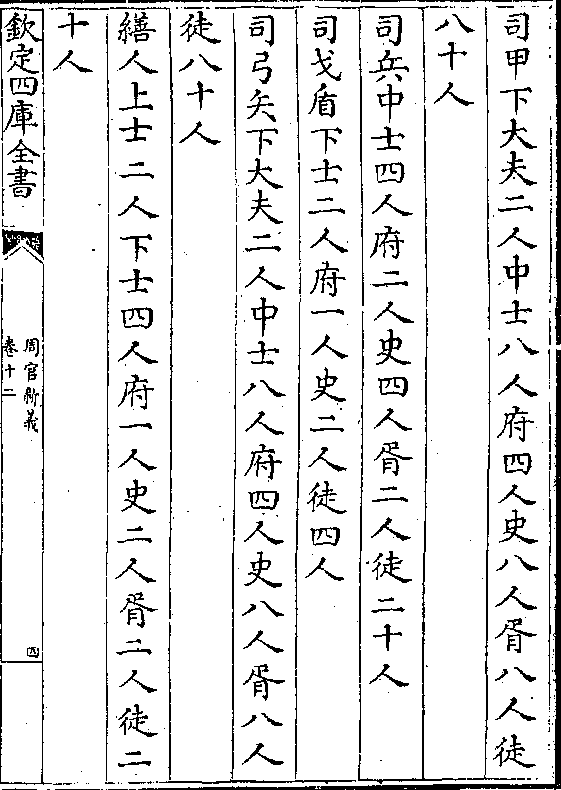 司甲下大夫二人中士八人府四人史八人胥八人徒
八十人
司兵中士四人府二人史四人胥二人徒二十人
司戈盾下士二人府一人史二人徒四人
司弓矢下大夫二人中士八人府四人史八人胥八人
徒八十人
繕人上士二人下士四人府一人史二人胥二人徒二
十人
欽定四庫全書
周官新義
卷十二
四